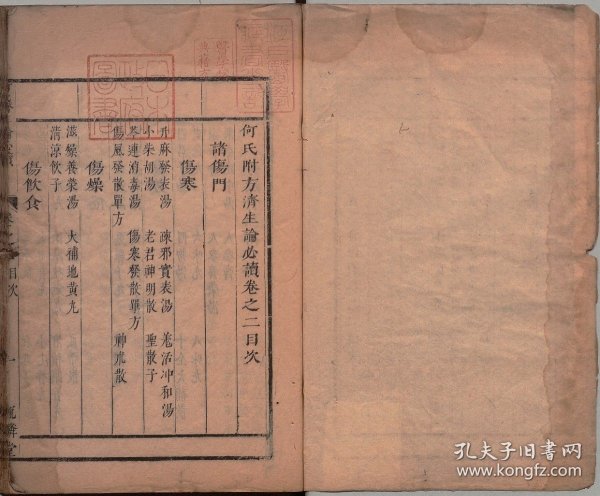 何氏附方濟生論必讀卷之二目次
諸傷門
傷寒
升麻發表湯 疎邪實表湯 羗活冲和湯
小柴胡湯 老君神明散 聖散子
芩連消毒湯 傷寒發散單方
傷風發散單方 神朮散
傷燥
滋燥養榮湯 大補地黃丸
清涼飲子
傷飲食
目次 一
日本政府圖書
孔夫子旧书网
www.kongfz.com